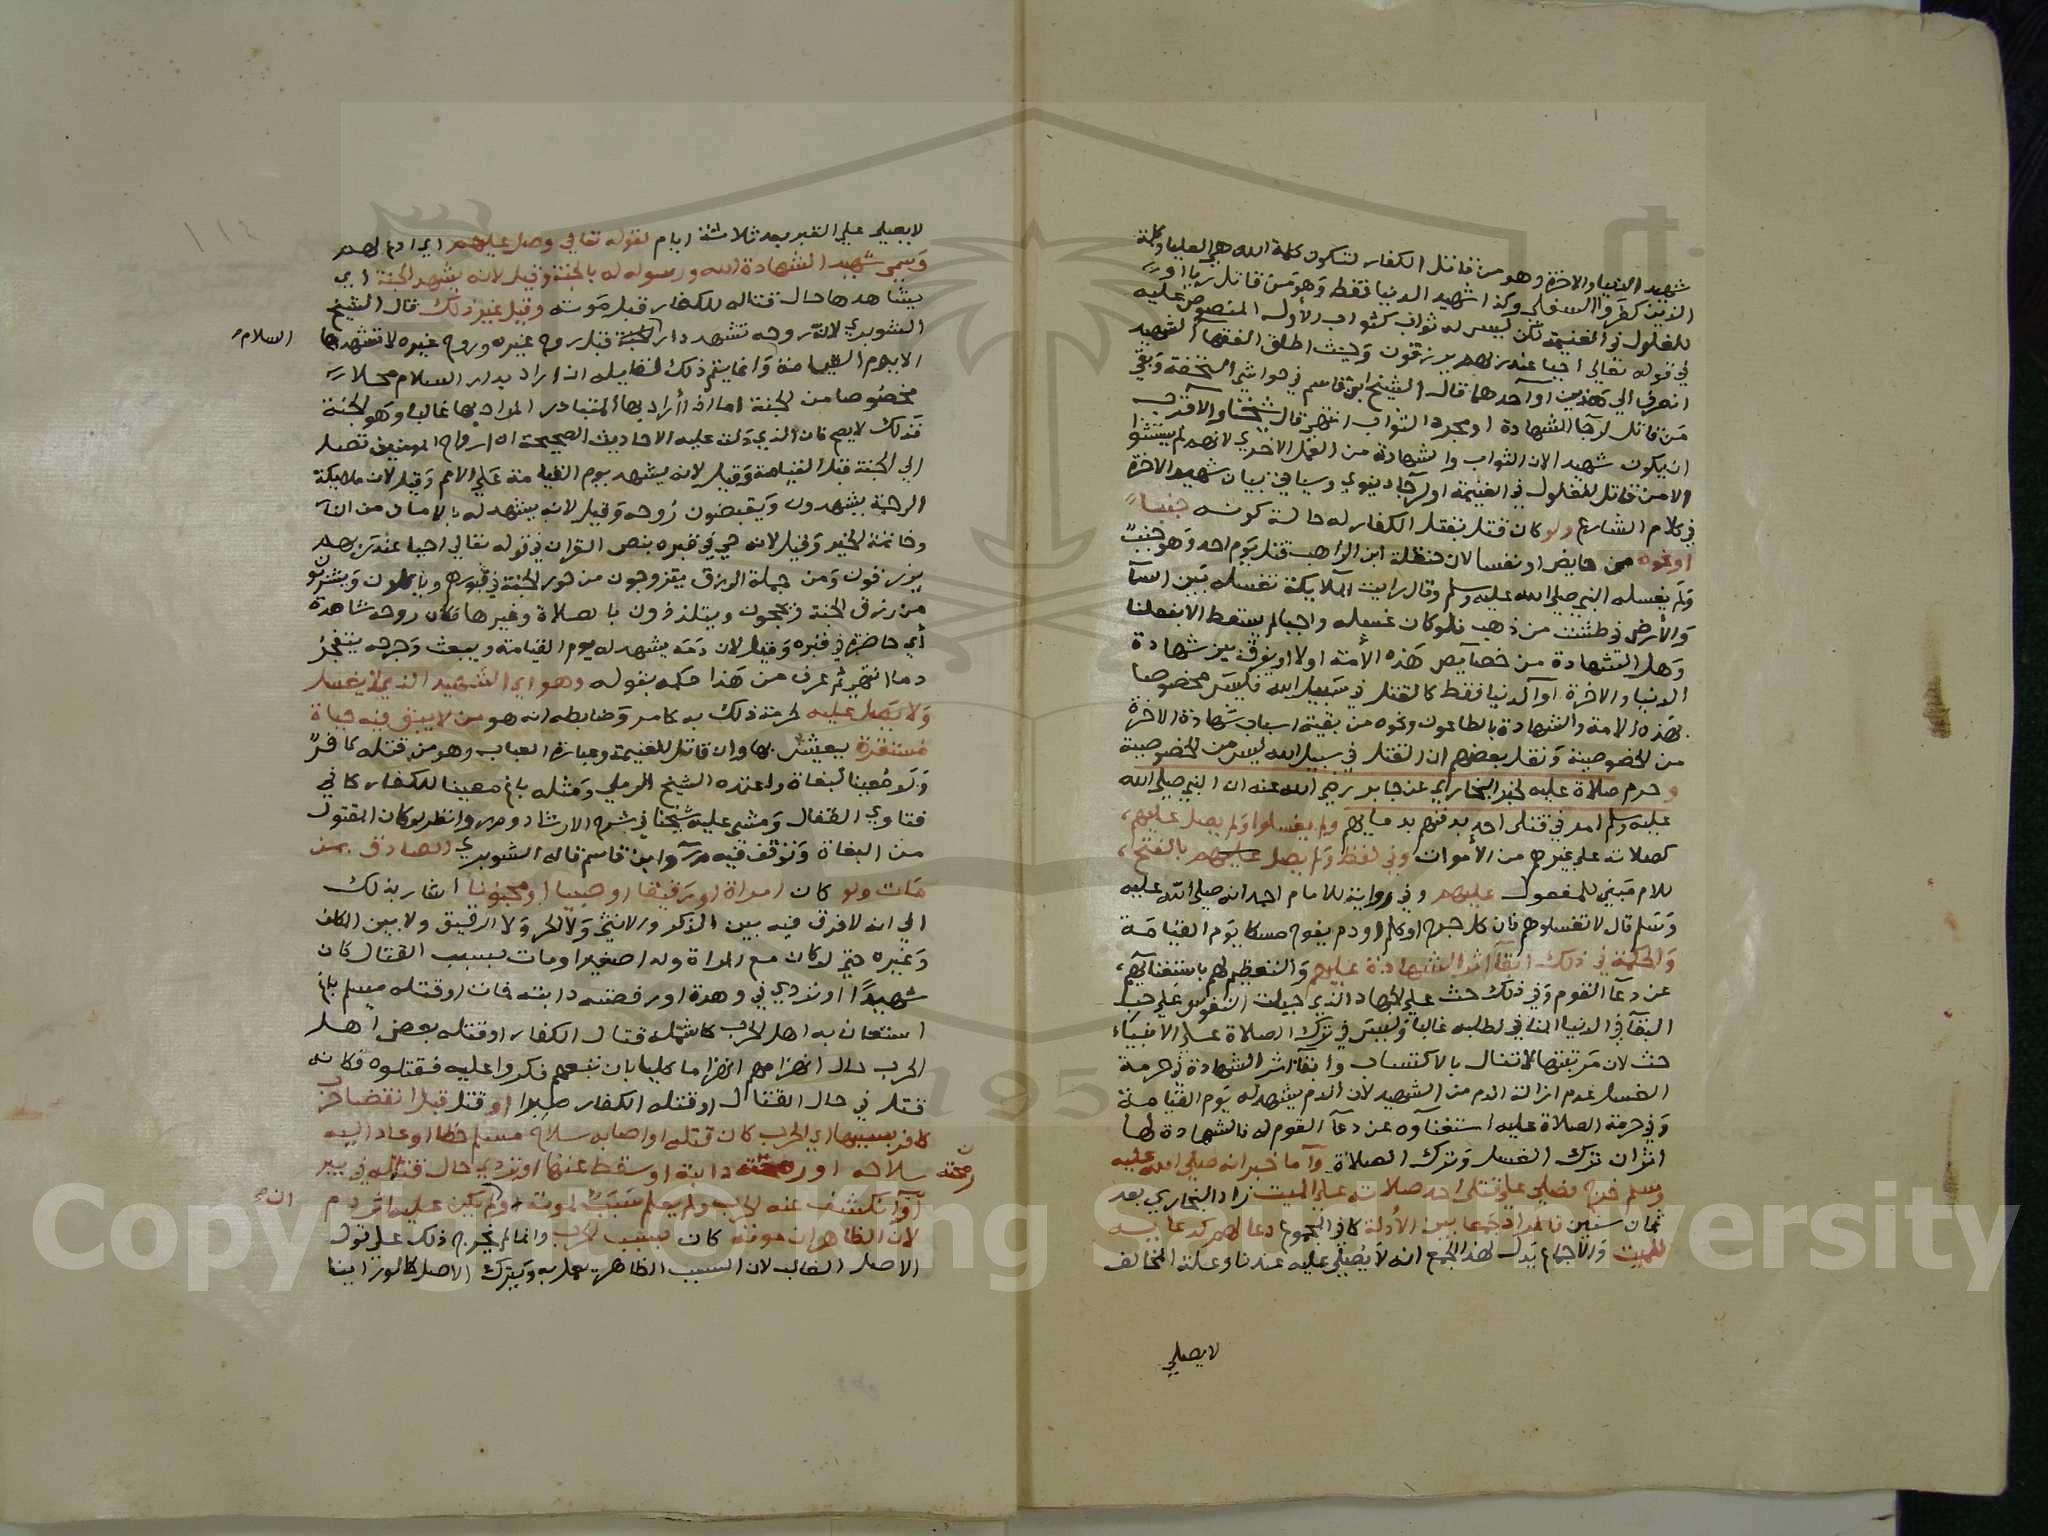 شهيد الدنيا والاخرة وهو من قاتل الكفار لتكون كلمة الله هي العليا وكلمة
الذين كفروا السفلى وكذا شهيد الدنيا فقط وهو من قاتل رياء او
للغلول في الغنيمة لكن ليس له ثواب كثواب الاول المنصوص عليه
في قوله تعالى احيا عند ربهم يرزقون وحيث اطلق الفقها الشهيد
انصرف الى هذين او احدهما قال الشيخ ابن قاسم في حواشي التحفة وبقي
من قاتل لرجا الشهادة او مجرد الثواب انتهى قال شيخنا والاقرب
ان يكون شهيد الان الثواب والشهادة من الفعل الاخروي لانهم لم يستثنوا
الا من قاتل للغلول في الغنيمة او لرجا دنيوي وسياتي بيان شهيد الاخرة
في كلام الشارع ولو كان قتل بقتل الكفار له حالة كونه جنبا
او نحوه من حايض او نفسا لان حنظلة ابن الراهب قتل يوم احد وهو جنب
ولم يغسله النبي صلى الله عليه وسلم وقال رايت الملايكة تغسله بين السما
والارض في طشت من ذهب فلو كان غسله واجبا لم يسقط الا بفعلنا
وهل الشهادة من خصايص هذه الامة او لا او يفرق بين شهادة
الدنيا والاخرة او الدنيا فقط كالقتل في سبيل الله فليس مخصوصا
بهذه الامة والشهادة بالطاعون ونحوه من بقية اسباب شهادة الاخرة
من الخصوصية ونقل بعضهم ان القتل في سبيل الله ليس من الخصوصية
وحرم صلاة عليه لخبر البخاري عن جابر رضي الله عنه ان النبي صلى الله
عليه وسلم امر في قتلى احد بدفنهم بدمايهم ولم يغسلوا ولم يصل عليهم
كصلاته على غيرهم من الاموات وفي لفظ ولم يصل عليهم بالفتح
للام مبني للمفعول عليهم وفي رواية للامام احمد انه صلى الله عليه
وسلم قال لا تغسلوهم فان كل جرح او كلم او دم يفوح مسكا يوم القيامة
والحكمة في ذلك ابقا اثر الشهادة عليهم والتعظيم لهم باستغنايهم
عن دعا القوم وفي ذلك حث على الجهاد الذي جبلت النفوس على حب
البقا في الدنيا المنافي لطلبه غالبا وليس في ترك الصلاة على الانبياء
حث لان مرتبتها لا تنال بالاكتساب وابقا اثر الشهادة في حرمة
الغسل عدم ازالة الدم من الشهيد لان الدم يشهد له يوم القيامة
وفي حرمة الصلاة عليه استغناوه عن دعا القوم له فالشهادة لها
اثران ترك الغسل وترك الصلاة واما خبر انه صلى الله عليه
وسلم خرج فصلى على قتلى احد صلاته على الميت زاد البخاري بعد
ثمان سنين فالمراد جمعا بين الادلة كما في المجموع دعا لهم كدعايه
للميت والاجماع يدل لهذا الجمع انه لا يصلى عليه عندنا وعلة المخالف
لا يصلي
لا يصلي على القبر بعد ثلاثة ايام لقوله تعالى وصل عليهم اي ادع لهم
وسمي شهيد الشهادة الله ورسوله له بالجنة وقيل لانه يشهد الجنة اي
يشاهدها حال قتاله للكفار قبل موته وقيل غير ذلك قال الشيخ
الشوبري لان روحه تشهد دار الجنة قبل روح غيره وروح غيره لا تشهدها
السلام
الا يوم القيامة وانما يتم ذلك لقايله ان اراد بدار السلام محلا
مخصوصا من الجنة اما اذا اراد بها المتبادر المراد بها غالبا وهو الجنة
فذلك لا يصح فان الذي دلت عليه الاحاديث الصحيحة ان ارواح المومنين تصل
الى الجنة قبل القيامة وقيل لانه يشهد يوم القيامة على الامم وقيل لان ملايكة
الرحمة يشهدون ويقبضون روحه وقيل لانه يشهد له بالامان من النار
وخاتمة الخير وقيل لانه حي في قبره بنص القران في قوله تعالى احيا عند ربهم
يرزقون ومن جملة الرزق يتزوجون من حور الجنة في قبورهم وياكلون ويشربون
من رزق الجنة ويحجون ويتلذذون بالصلاة وغيرها فكان روحه شاهدة
اي حاضرة في قبره وقيل لان دمه يشهد له يوم القيامة ويبعث وجرحه يتفجر
دما انتهى ثم عرف من هذا حكمه بقوله وهو اي الشهيد الذي لا يغسل
ولا يصلى عليه لحرمة ذلك به كما مر وضابطه انه هو من لا يبق فيه حياة
مستقرة يعيش بها وان قاتل للغنيمة وعبارة العباب وهو من قتله كافر
ولو معينا لبغاة واعتمده الشيخ الرملي ومثله باغ معينا للكفار كما في
فتاوي القفال ومشى عليه شيخنا في شرح الارشاد و م ر وانظر لو كان المقتول
من البغاة وتوقف فيه م ر وابن قاسم قاله الشوبري الصادق بمن
مات ولو كان امراة او رقيقا او صبيا او مجنونا اشار بذلك
الى انه لا فرق فيه بين الذكر والانثى ولا الحر ولا الرقيق ولا بين المكلف
وغيره حتى لو كان مع المراة ولد اصغيرا ومات بسبب القتال كان
شهيدا او تردي في وهدة او رفصته دابته فمات او قتله مسلم باغ
استعان به اهل الحرب كما شمله قتال الكفار او قتله بعض اهل
الحرب حال انهزامهم انهزاما كليا بان تبعهم فكروا عليه فقتلوه فكانه
قتل في حال القتال او قتله الكفار صبرا او قتل قبل انقضا حرب
كافر بسببها اي الحرب كان قتله او اصابه سلاح مسلم خطا او عاد اليه
سلاحه او رمحته دابة او سقط عنها او تردي حال قتاله في بير
رمحته
او انكشف عنه الحرب ولم يعلم سبب لموته وان لم يكن عليه اثر دم
لان الظاهر ان موته كان بسبب الحرب وانما لم يخرج ذلك على قول
الاصل الغالب لان السبب الظاهر يعمل به ويترك الاصل كما لو راينا